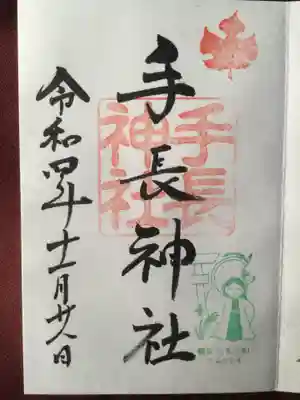 手長神社
手長
神社
令和四年十一月廿八日